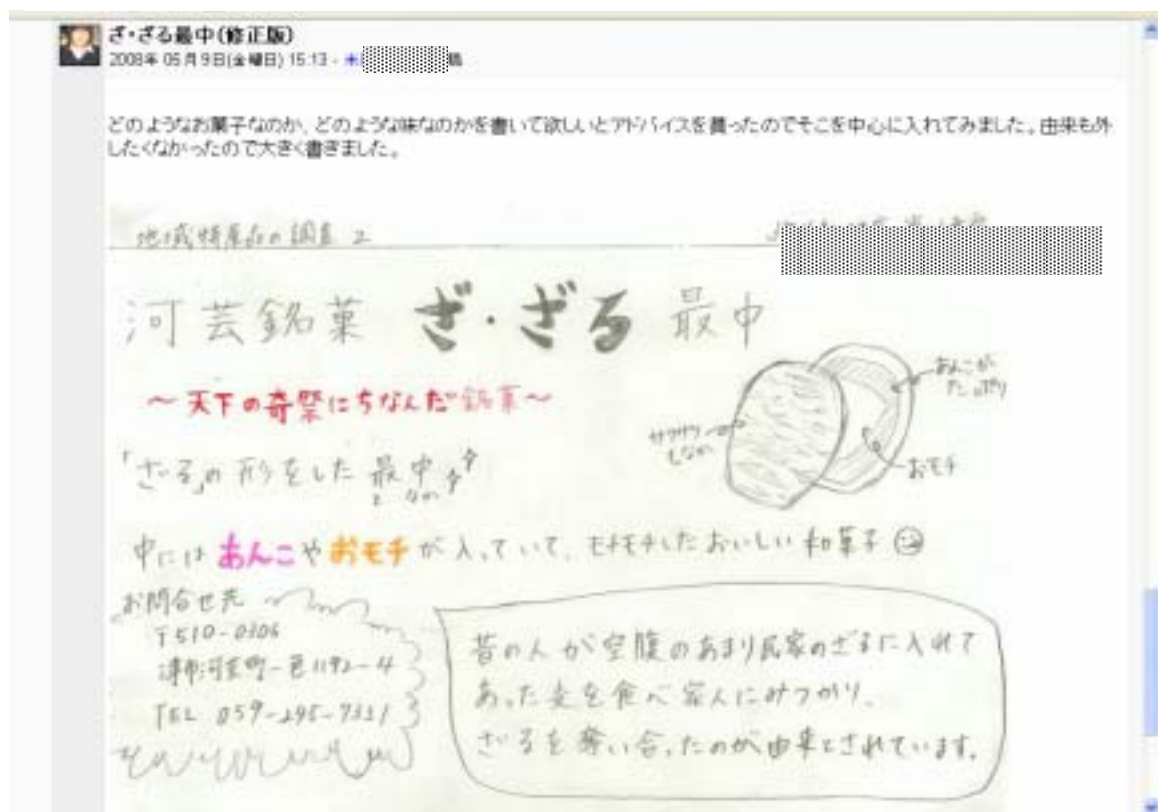 ざ・ざる最中(修正版)
2008年 05月9日(金曜日) 15:13 -
どのようなお菓子なのか、どのような味なのかを書いて欲しいとアドバイスを貰ったのでそこを中心に入れてみました。由来も外
したくなかったので大きく書きました。
地域特産品の調査 2
河芸銘菓 ざ・ざる 最中
～天下の奇祭にちなんだ銘菓～
あんこが
たっぷり
サクサク
もなか
おモチ
「ざる」の形をした最中
もなか
中にはあんこやおモチが入っていて、モチモチしたおいしい和菓子
お問合せ先
〒510-0306
津市河芸町一色1192-4
TEL 059-245-7331
昔の人が空腹のあまり民家のざるに入れて
あった麦を食べ家人にみつかり、
ざるを奪い合ったのが由来とされています。